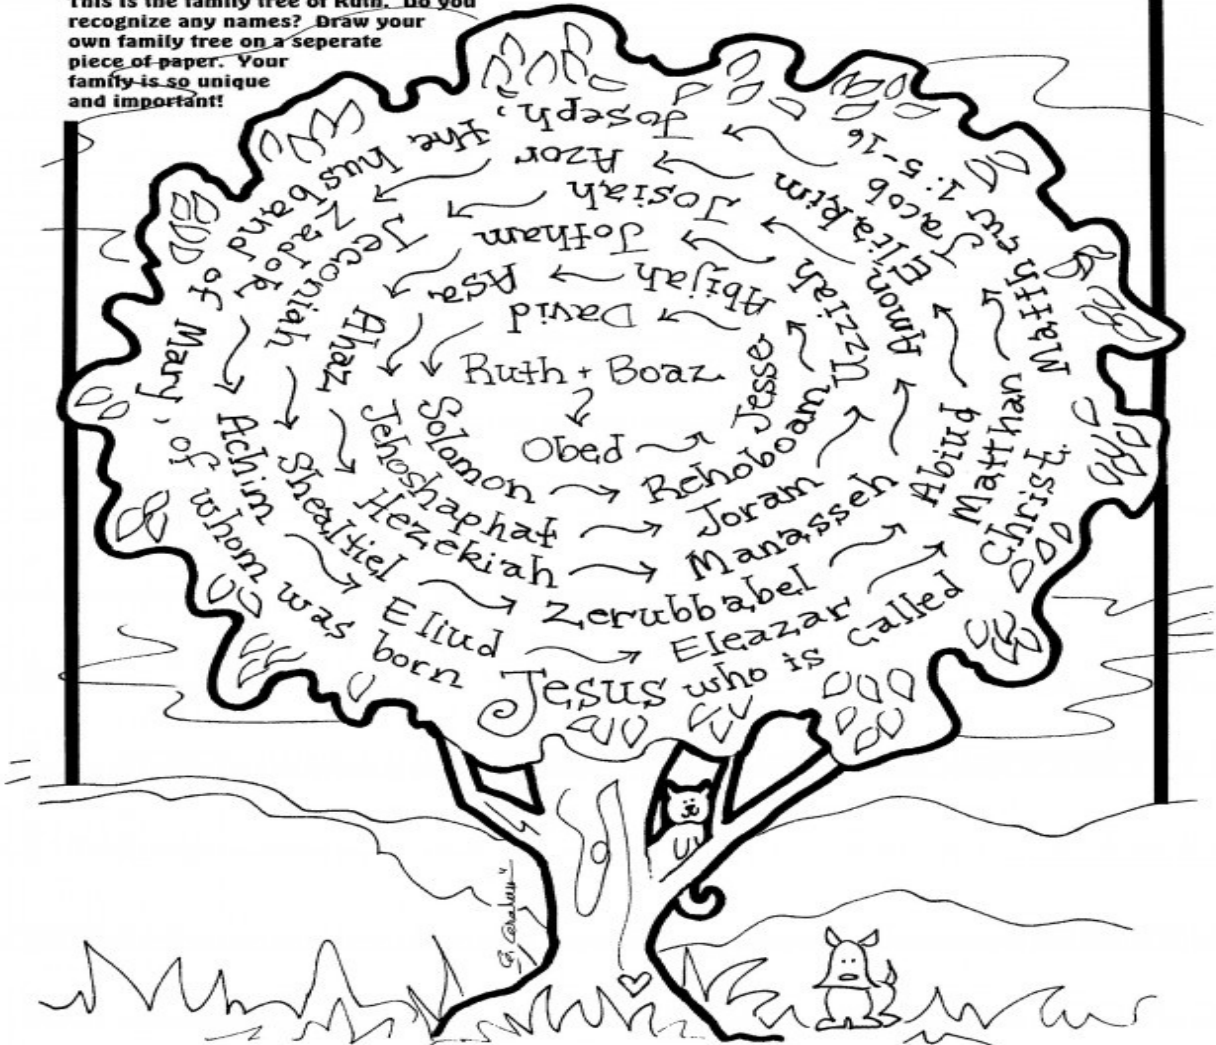 This is the family tree of Ruth. Do you
recognize any names? Draw your
own family tree on a seperate
piece of paper. Your
family is so unique
and important!
Ruth + Boaz
Obed
Jesse
David
Solomon
Rehoboam
Abijah
Asa
Jehoshaphat
Joram
Uzziah
Jotham
Ahaz
Hezekiah
Manasseh
Amon
Josiah
Jeconiah
Shealtiel
Zerubbabel
Abiud
Eliakim
Azor
Zadok
Achim
Eliud
Eleazar
Matthan
Jacob
Joseph, the husband of Mary, of whom was born Jesus who is called Christ.
Matthew 1:5-16